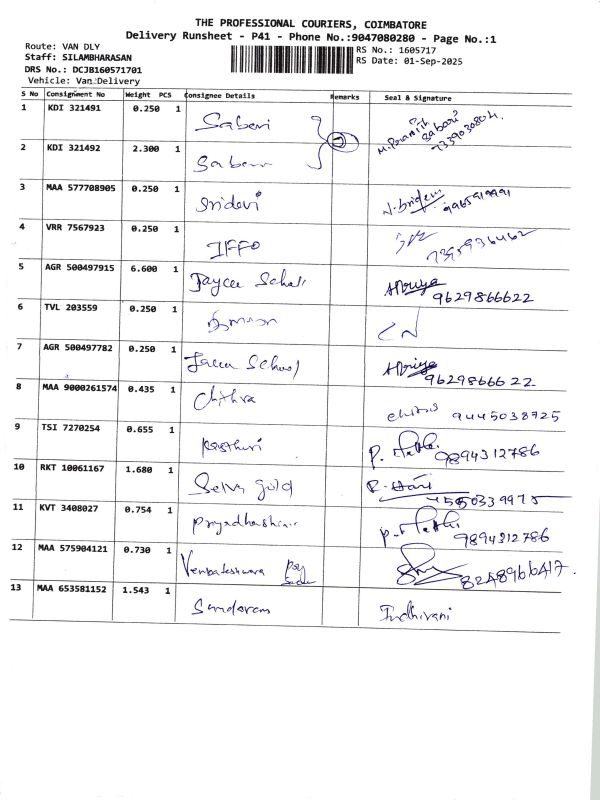 THE PROFESSIONAL COURIERS, COIMBATORE
Delivery Runsheet - P41 - Phone No.:9047080280 - Page No.:1
Route: VAN DLY
RS No.: 1605717
Staff: SILAMBHARASAN
RS Date: 01-Sep-2025
DRS No.: DCJB160571701
Vehicle: Van Delivery
S No Consignment No Weight PCS Consignee Details Remarks Seal & Signature
1 KDI 321491 0.250 1 Saberi Sabari 7339030804
2 KDI 321492 2.300 1
3 MAA 577708905 0.250 1 Sridevi 9965919991
4 VRR 7567923 0.250 1 IFFO
5 AGR 500497915 6.600 1 Jaycee School 9629866622
6 TVL 203559 0.250 1
7 AGR 500497782 0.250 1 Jacee School 9629866622
8 MAA 9000261574 0.435 1 Chithra 9445038725
9 TSI 7270254 0.655 1 Kasthuri 9894312786
10 RKT 10061167 1.680 1 Selva gold R. Hari
11 KVT 3408027 0.754 1 9894312786
12 MAA 575904121 0.730 1 Venkateshwara 8248966417
13 MAA 653581152 1.543 1 Sundaram Indhirani